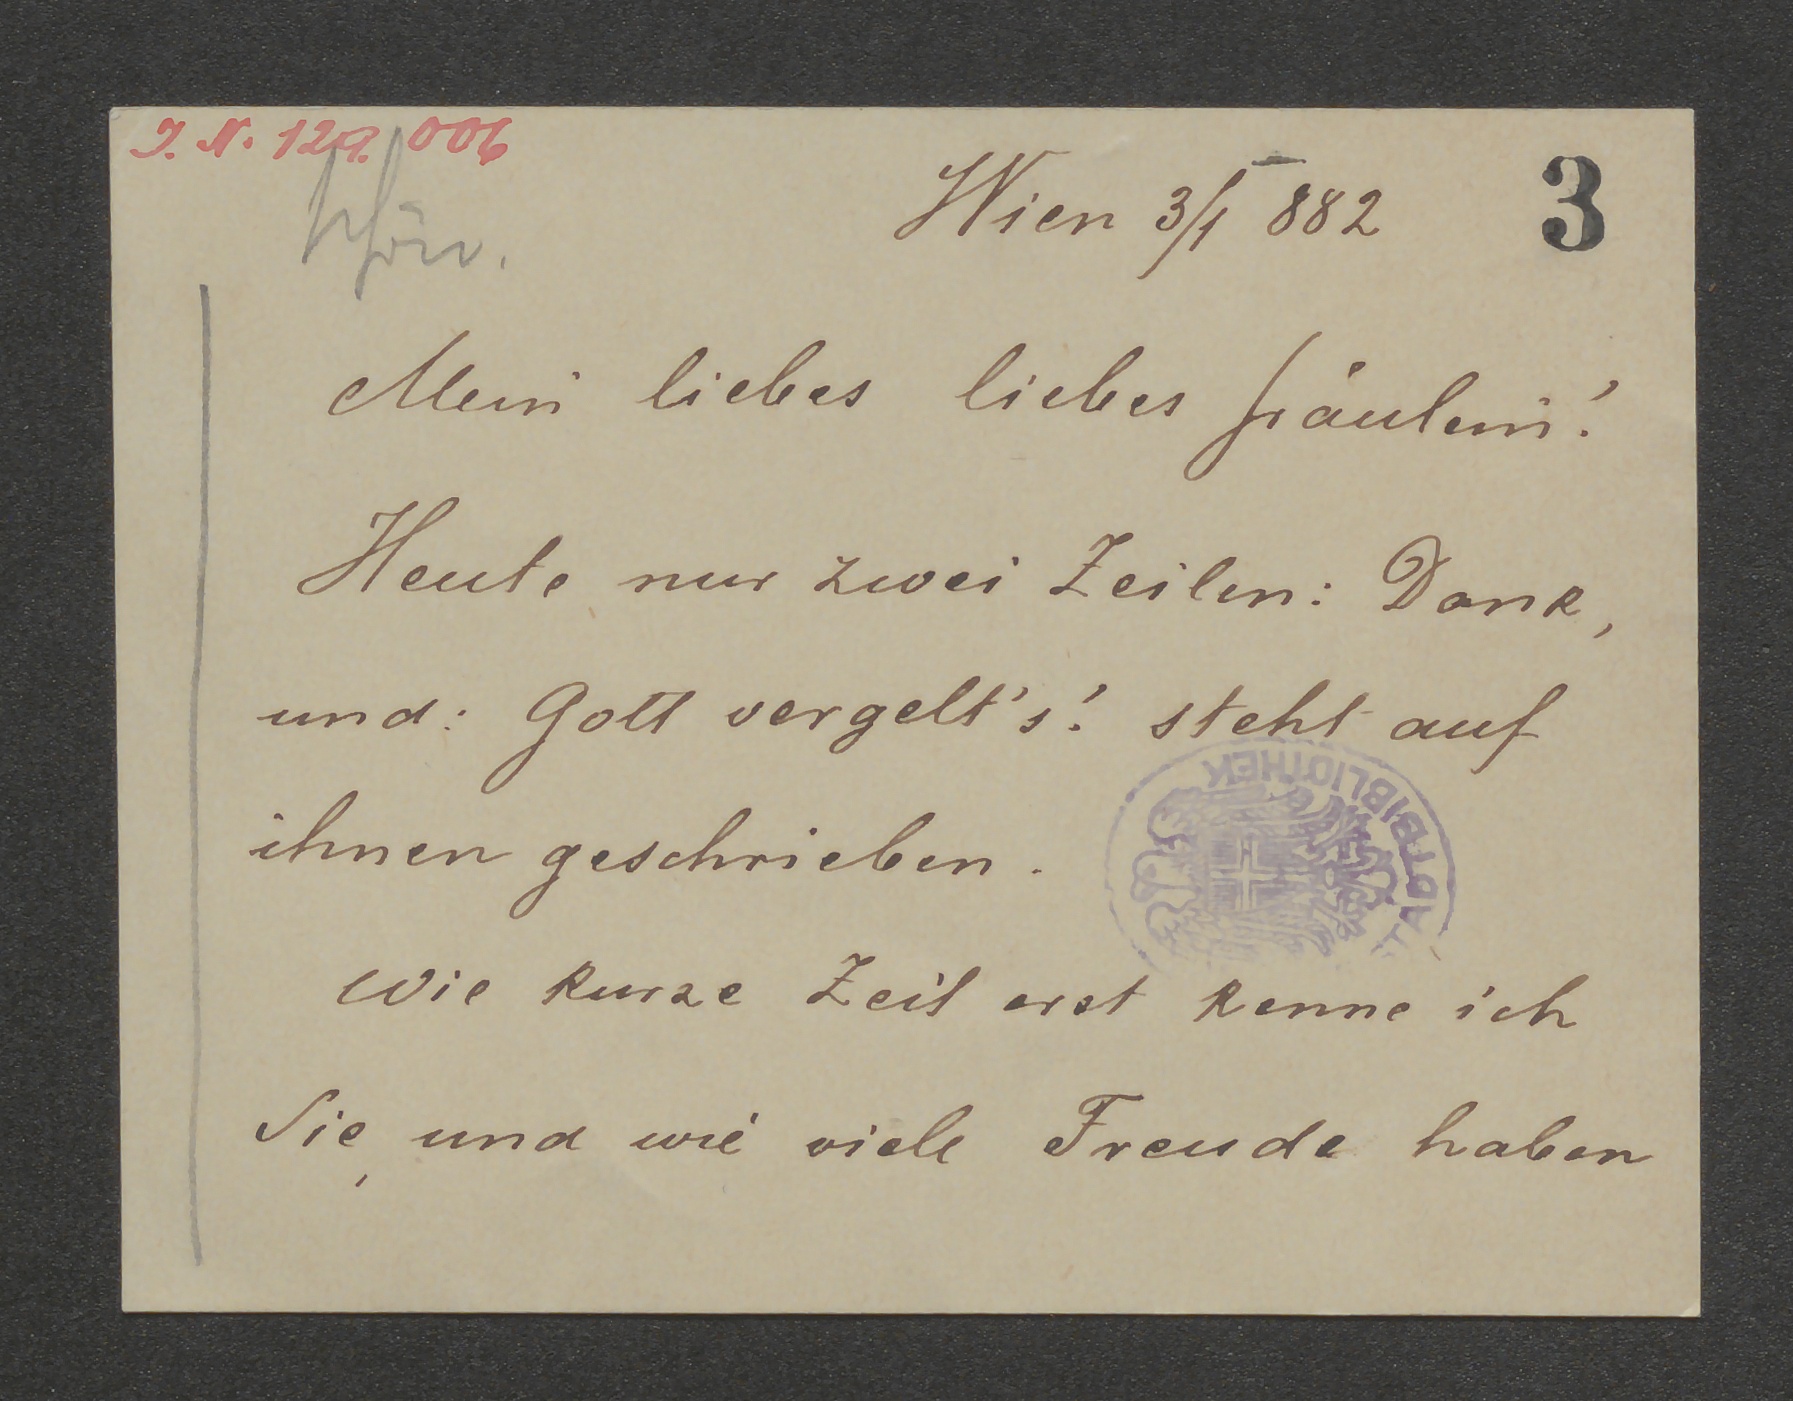 J. N. 129.006
schön.
Wien 3/1 882
3
Mein liebes liebes Fräulein!
Heute nur zwei Zeilen: Dank,
und: Gott vergelt's! steht auf
ihnen geschrieben.
STADTBIBLIOTHEK
Wie kurze Zeit erst kenne ich
Sie, und wie viele Freude haben